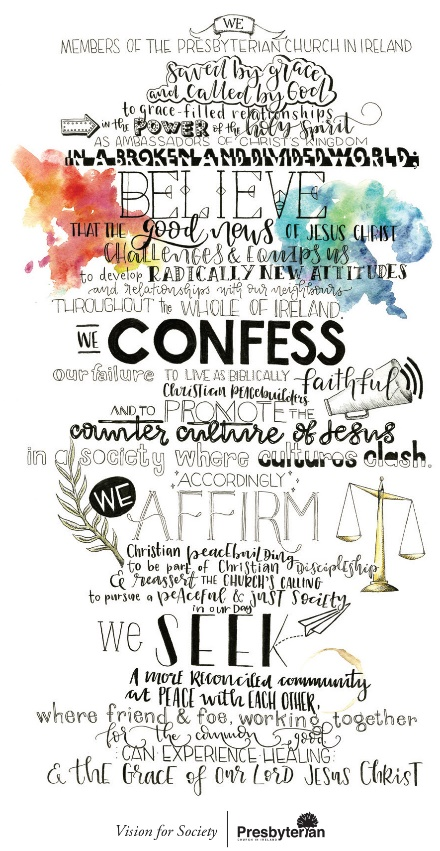 WE
MEMBERS OF THE PRESBYTERIAN CHURCH IN IRELAND
saved by grace
and called by God
to grace-filled relationships
in the POWER of the holy Spirit
AS AMBASSADORS OF CHRIST'S KINGDOM
IN A BROKEN AND DIVIDED WORLD:
BELIEVE
THAT THE good news OF JESUS CHRIST
Challenges & Equips us
to develop RADICALLY NEW ATTITUDES
and relationships with our neighbours
THROUGHOUT the WHOLE OF IRELAND.
WE CONFESS
our failure TO LIVE AS BIBLICALLY faithful
Christian Peacebuilders
AND TO PROMOTE THE
counter culture of Jesus
in a society where cultures clash.
ACCORDINGLY
WE AFFIRM
Christian peacebuilding
to be part of Christian Discipleship
& reassert THE CHURCH'S CALLING
to pursue a peaceful & just Society
in our Day
we SEEK
A more Reconciled community
at PEACE with EACH OTHER,
where friend & foe, working together
for the common good
CAN EXPERIENCE HEALING
& the Grace of Our Lord Jesus Christ
Vision for Society
Presbyterian
CHURCH IN IRELAND